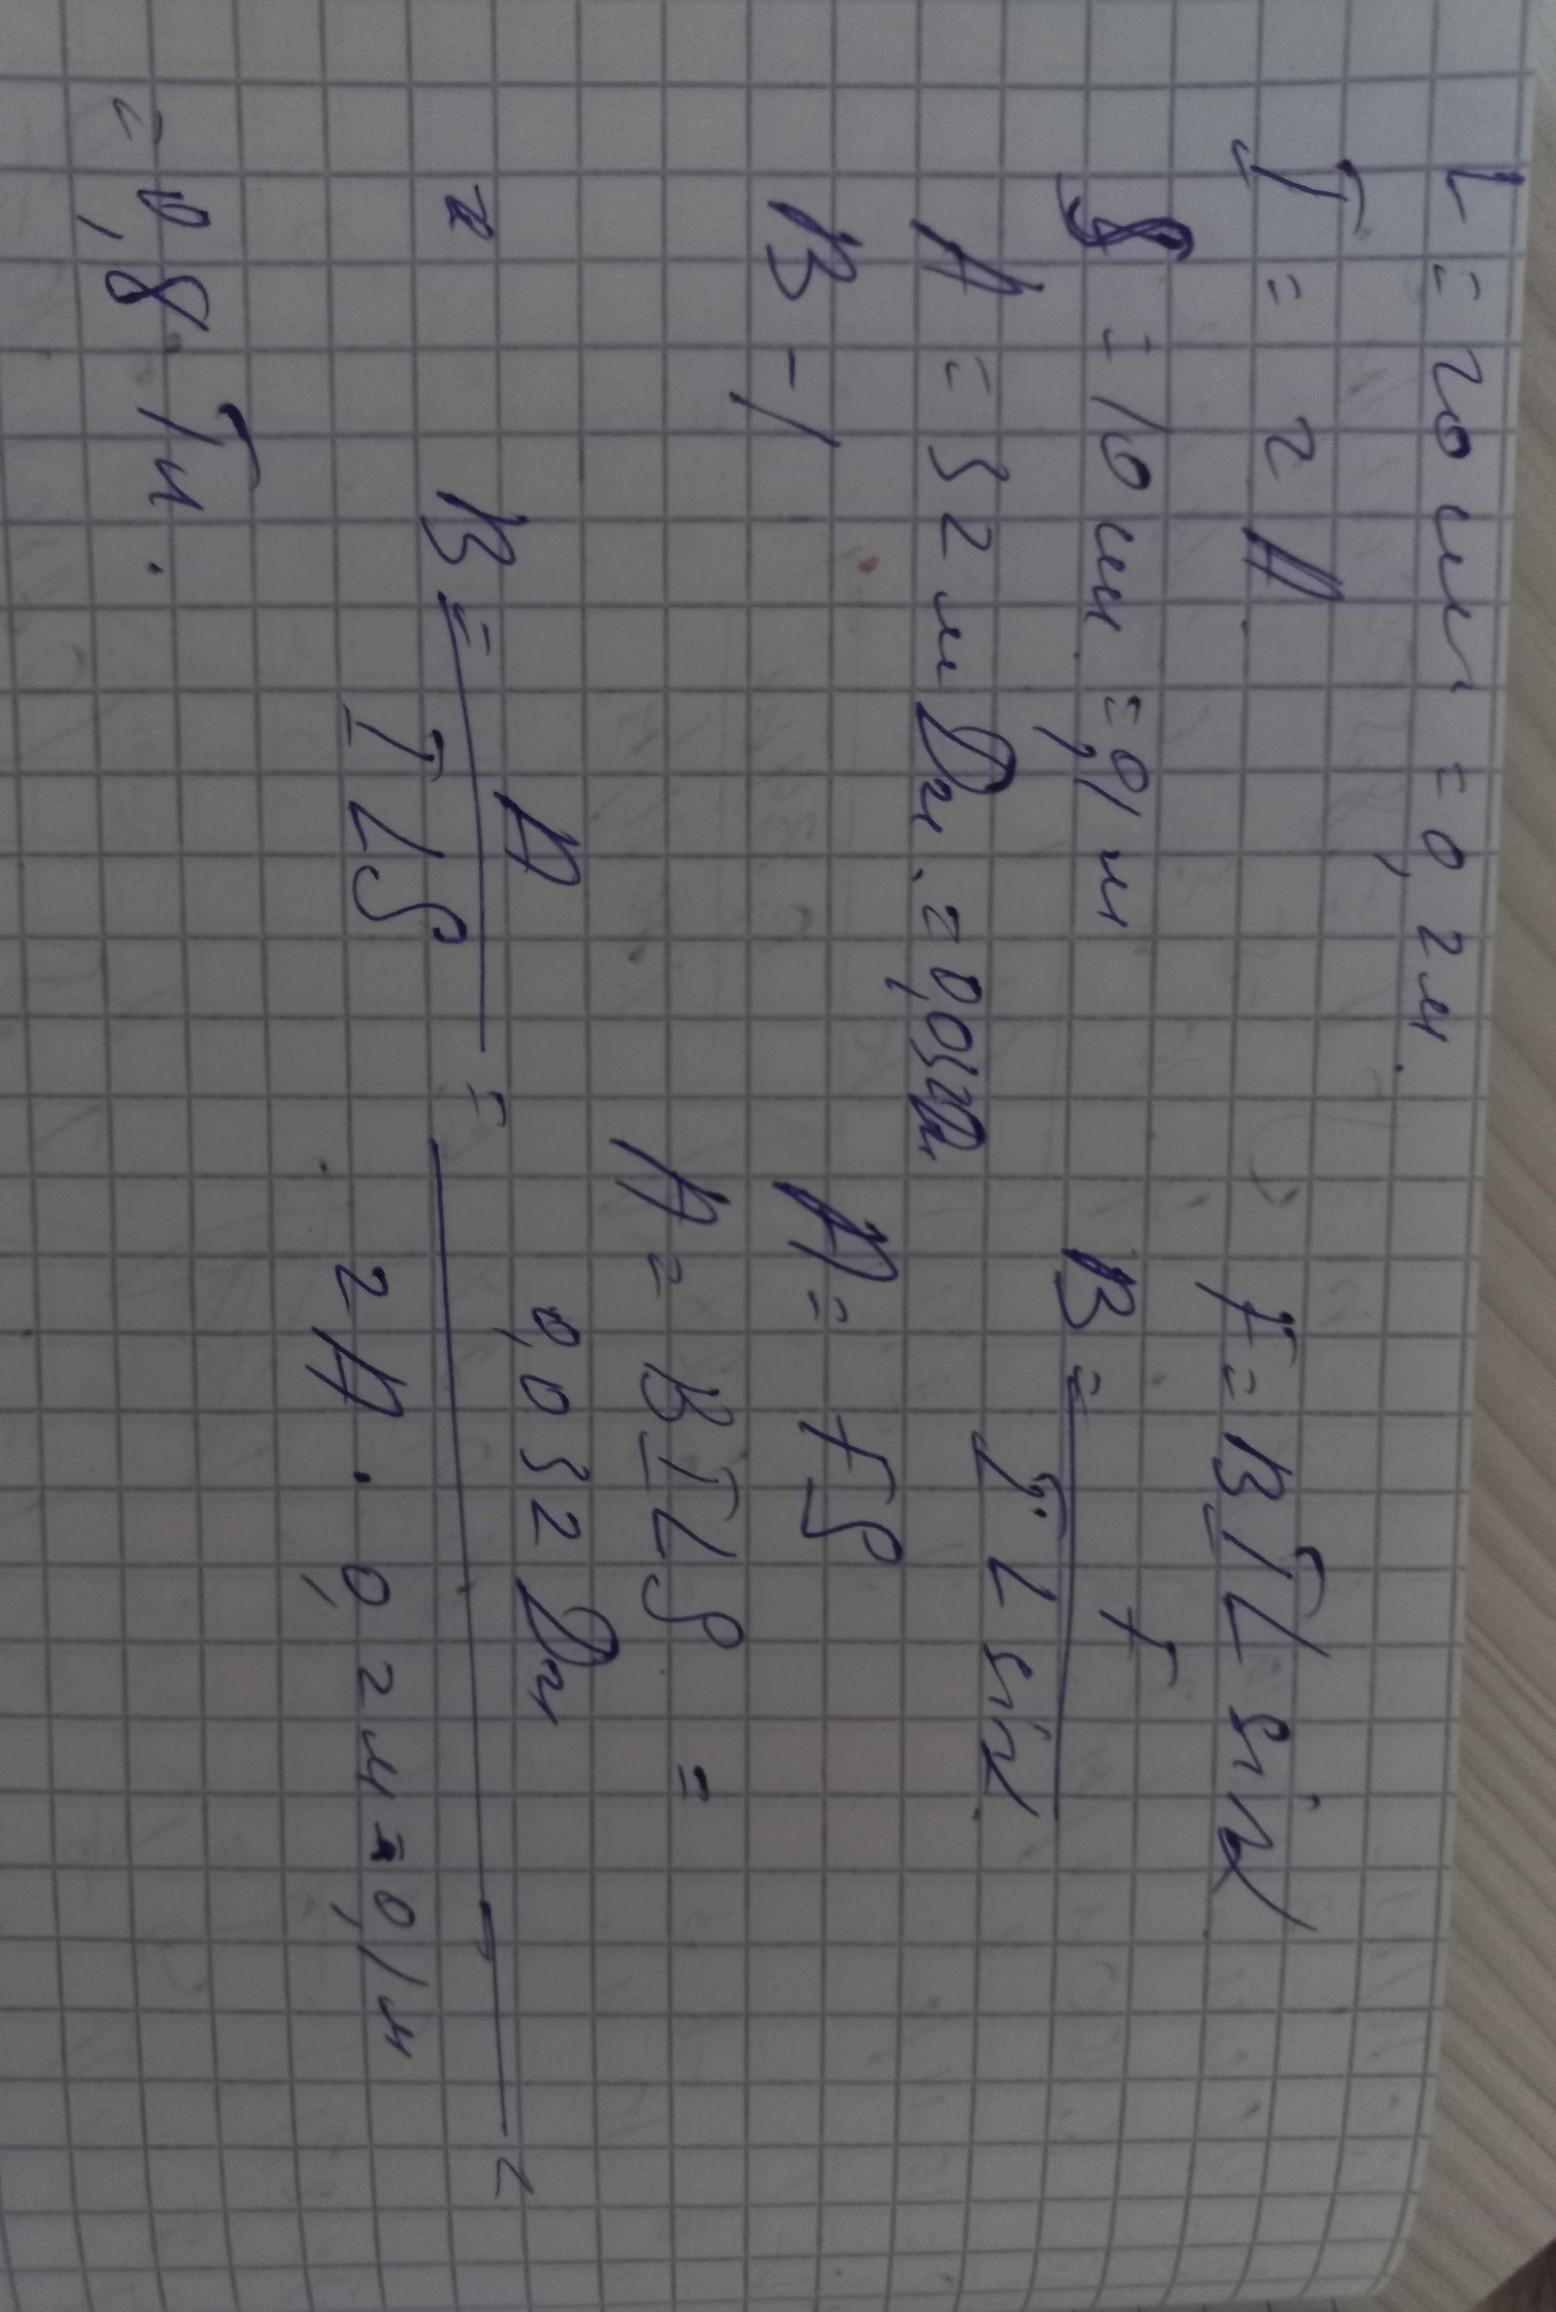 L = 20 см = 0,2 м.
I = 2 А.
S = 10 см = 0,1 м
A = 32 мДж. = 0,032Дж
B - ?
F = BIL sin α
B = F / I · L sin α
A = FS
A = BILS =
B = A / ILS = 0,032 Дж / 2 А · 0,2 м · 0,1 м =
= 0,8 Тл.